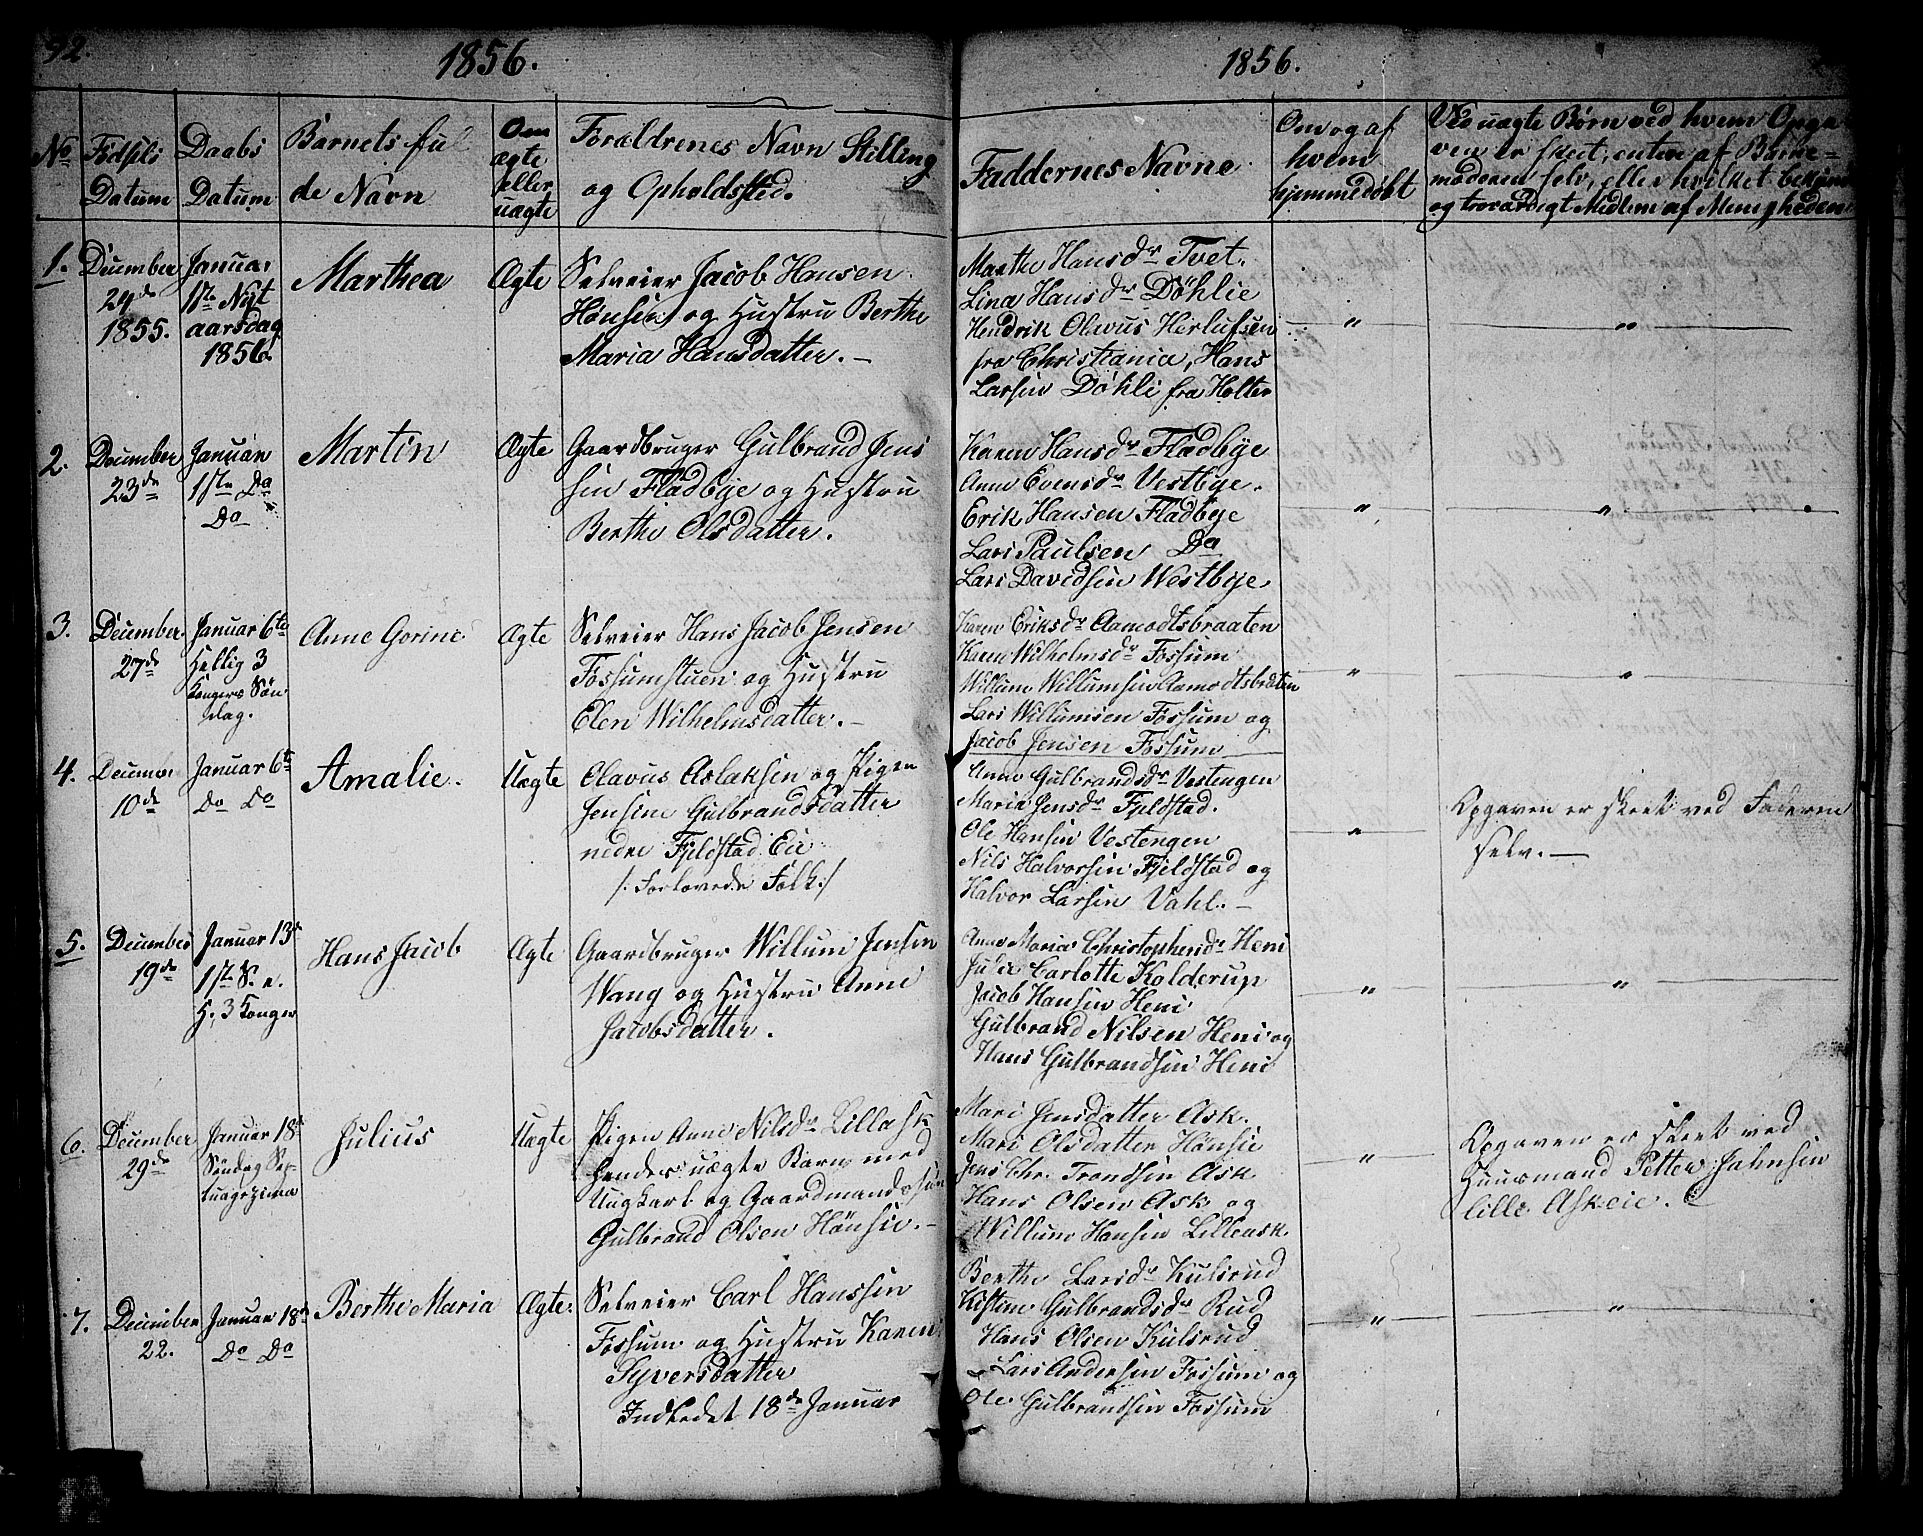 92.
1856.
No
Fødsels
Datum
Daabs
Datum
Barnets ful
de Navn
Om
ægte
eller
uægte
Forældrenes Navn Stilling
og Opholdsted.
1.
December
24de
1855.
Januar
1ste Nyt
aarsdag
1856.
Marthea
Ægte
Selveier Jacob Hansen
Hønsen og Hustru Berthe
Maria Hansdatter. —
2.
December
23de
Januar
1ste Do
Do
Martin
Ægte
Gaardbruger Gulbrand Jens
sen Fladbye og Hustru
Berthe Olsdatter.
3.
December
27de
Januar 6te
Hellig 3
Kongers Søn
dag.
Anne Gorine
Ægte
Selveier Hans Jacob Jensen
Fossumstuen og Hustru
Elen Wilhelmsdatter. —
4.
December
10de
Januar 6te
Do Do
Amalie.
Uægte
Olavus Aslaksen og Pigen
Jensine Gulbrandsdatter
nedre Fjeldstad Eie
/: Forlovede Folk:/
5.
December
19de
Januar 13de
1ste S. e.
H. 3 Konger
Hans Jacob
Ægte
Gaardbruger Willum Jensen
Wang og Hustru Anne
Jacobsdatter.
6.
December
29de
Januar 18de
Søndag Sep-
tuagezima
Julius
Uægte
Pigen Anne Nilsdr Lilleask
hendes uægte Barn med
Ungkarl og Gaardmandssøn
Gulbrand Olsen Hønsie. —
7.
December
22.
Januar 18de
Do Do
Berthe Maria
Ægte.
Selveier Carl Hanssen
Fossum og Hustru Karen
Syversdatter
Indledet 18de Januar
1856.
Faddernes Navne
Om og af
hvem
hjemmedøbt
Ved uægte Børn ved hvem Opga-
ven er skeet, enten af Barne-
moderen selv, eller hvilket bekjendt
og troværdigt Medlem af Menigheden
Marthe Hansdr Tvet.
Lina Hansdr Døhlie
Hendrik Olavus Herlufsen
fra Christiania, Hans
Larsen Døhli fra Holter
" "
Karen Hansdr Fladbye
Anne Evensdr Vestbye.
Erik Hansen Fladbye
Lars Paulsen Do
Lars Davidsen Westbye
" "
Karen Eriksdr Aamodtsbraaten
Karen Wilhelmsdr Fossum
Willum Willumsen Aamodtsbraten
Lars Willumsen Fossum og
Jacob Jensen Fossum
" "
Anne Gulbrandsdr Vestengen
Maria Jensdr Fjeldstad.
Ole Hansen Vestengen
Nils Halvorsen Fjeldstad og
Halvor Larsen Vahl. —
"
Opgaven er skeet ved Faderen
selv. —
Anne Maria Christophersdr Heni
Julie Carlotte Kolderup
Jacob Hansen Heni
Gulbrand Nilsen Heni og
Hans Gulbrandsen Heni
" "
Mari Jensdatter Ask.
Mari Olsdatter Hønsie
Jens Chr. Trondsen Ask
Hans Olsen Ask og
Willum Hansen Lilleask.
"
Opgaven er skeet ved
Huusmand Petter Johnsen
lille Askeie.
Berthe Larsdr Kulsrud
Kistine Gulbrandsdr Rud
Hans Olsen Kulsrud
Lars Andersen Fossum og
Ole Gulbrandsen Fossum
" "